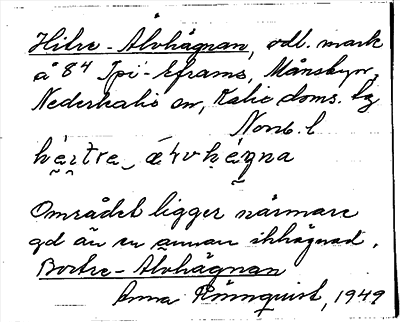 Hitre-Åkvhägnan, odl. mark
å 84 Ipi-Eframs, Månsbyn,
Nederkalix sn, Kalix doms. hg
Norrb. l
Området ligger närmare
gd än en annan ihhägnad,
Bortre-Åkvhägnan
Anna Rönnquist, 1949